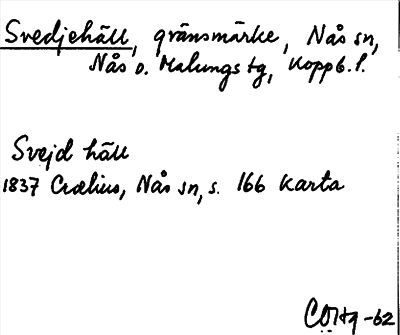 Svedjehäll, gränsmärke, Nås sn,
Nås o. Malungs tg, Koppb. l.
Svejd häll
1837 Crælius, Nås sn, s. 166 Karta
-62